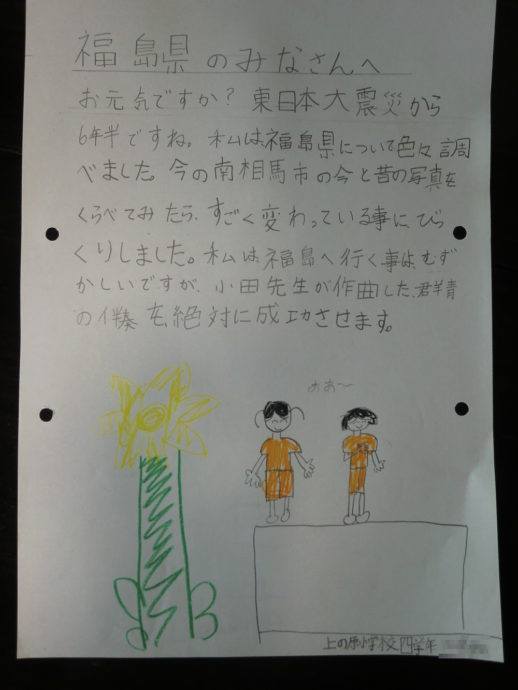 福島県のみなさんへ
お元気ですか？東日本大震災から
6年半ですね。私は福島県について色々調
べました。今の南相馬市の今と昔の写真を
くらべてみたら、すごく変わっている事に、びっ
くりしました。私は福島へ行く事は、むず
かしいですが、小田先生が作曲した、群青
の伴奏を絶対に成功させます。
あぁ〜
上の原小学校 四学年